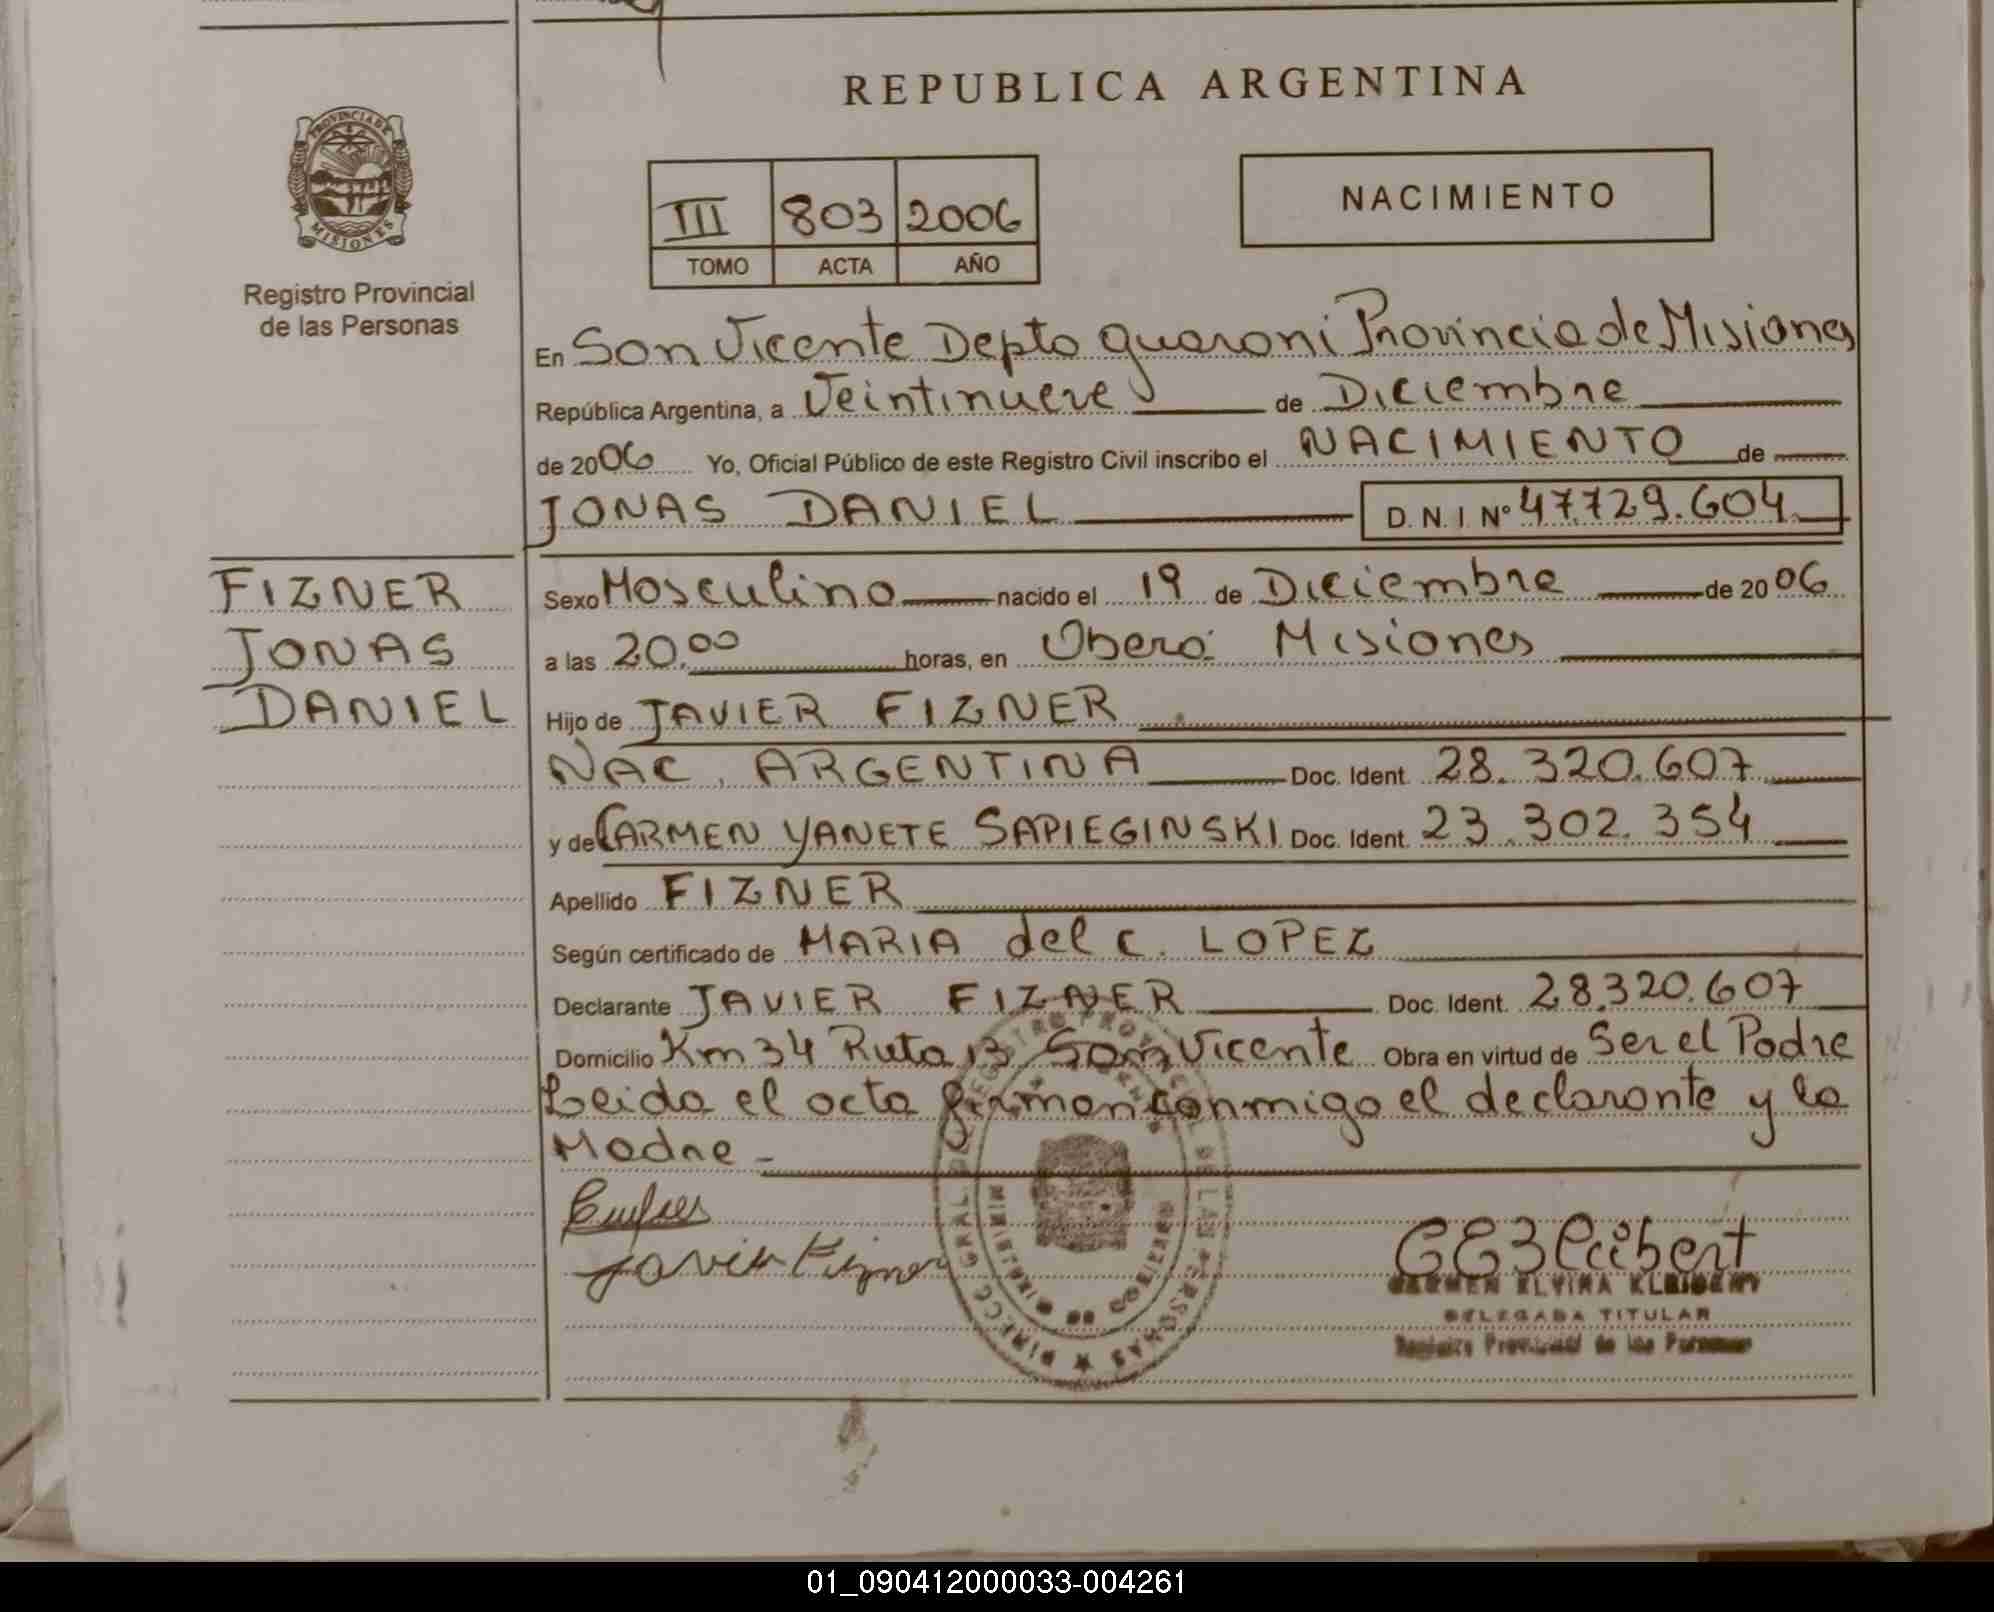 REPUBLICA ARGENTINA
PROVINCIA DE
MISIONES
Registro Provincial
de las Personas
III 803 2006
TOMO ACTA AÑO
NACIMIENTO
En San Vicente Depto Guarani Provincia de Misiones
República Argentina, a Veintinueve de Diciembre
de 2006 Yo, Oficial Público de este Registro Civil inscribo el NACIMIENTO de
JONAS DANIEL D.N.I. Nº 47.729.604
FIZNER
JONAS
DANIEL
Sexo Masculino nacido el 19 de Diciembre de 2006
a las 20.00 horas, en Oberá Misiones
Hijo de JAVIER FIZNER
NAC. ARGENTINA Doc. Ident. 28.320.607
y de CARMEN YANETE SAPIEGINSKI Doc. Ident. 23.302.354
Apellido FIZNER
Según certificado de MARIA del C. LOPEZ
Declarante JAVIER FIZNER Doc. Ident. 28.320.607
Domicilio Km 34 Ruta 13 San Vicente Obra en virtud de Ser el Padre
Leida el acta firman conmigo el declarante y la
Madre -
Javier Fizner
CARMEN ELVIRA KLEIBERT
DELEGADA TITULAR
Registro Provincial de las Personas
01_090412000033-004261